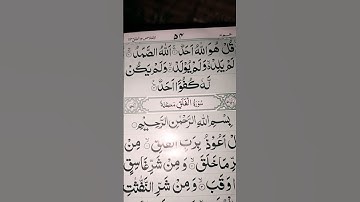 ۵۴
قُلْ هُوَ اللّٰهُ اَحَدٌ ۚ اَللّٰهُ الصَّمَدُ ۚ
لَمْ يَلِدْ ۙ وَلَمْ يُوْلَدْ ۙ وَلَمْ يَكُنْ
لَّهٗ كُفُوًا اَحَدٌ
سُوْرَةُ الْفَلَقِ
بِسْمِ اللهِ الرَّحْمٰنِ الرَّحِيْمِ
اَعُوْذُ بِرَبِّ الْفَلَقِ ۙ مِنْ
مَا خَلَقَ ۙ وَمِنْ شَرِّ غَاسِقٍ
وَقَبَ ۙ وَمِنْ شَرِّ النَّفّٰثٰتِ